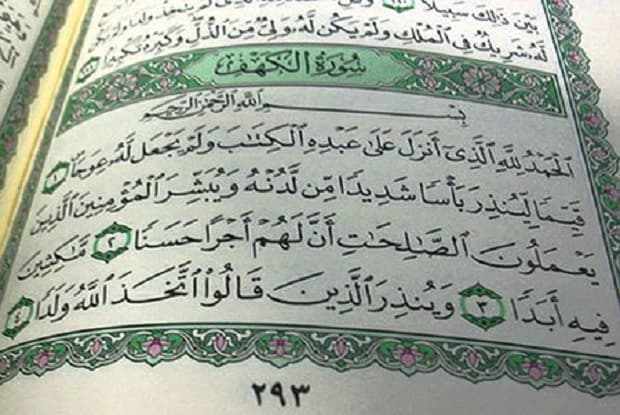 بَيْنَ ذَٰلِكَ سَبِيلًا
لَّهُۥ شَرِيكٌ فِى ٱلْمُلْكِ وَلَمْ يَكُن لَّهُۥ وَلِىٌّ مِّنَ ٱلذُّلِّ وَكَبِّرْهُ تَكْبِيرًا ١١١
سُورَةُ الكَهْفِ
بِسْمِ ٱللَّهِ ٱلرَّحْمَٰنِ ٱلرَّحِيمِ
ٱلْحَمْدُ لِلَّهِ ٱلَّذِىٓ أَنزَلَ عَلَىٰ عَبْدِهِ ٱلْكِتَٰبَ وَلَمْ يَجْعَل لَّهُۥ عِوَجَا ١
قَيِّمًا لِّيُنذِرَ بَأْسًا شَدِيدًا مِّن لَّدُنْهُ وَيُبَشِّرَ ٱلْمُؤْمِنِينَ ٱلَّذِينَ
يَعْمَلُونَ ٱلصَّٰلِحَٰتِ أَنَّ لَهُمْ أَجْرًا حَسَنًا ٢ مَّٰكِثِينَ
فِيهِ أَبَدًا ٣ وَيُنذِرَ ٱلَّذِينَ قَالُوا۟ ٱتَّخَذَ ٱللَّهُ وَلَدًا ٤
٢٩٣